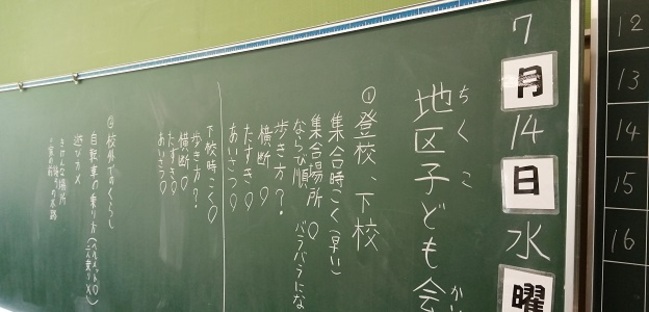 7月14日水曜
地区子ども会
ちくこ かい
①登校、下校
集合時こく(早い)
集合場所 〇
ならび順 バラバラにな
歩き方?
横断 〇
たすき〇
あいさつ〇
下校時こく〇
歩き方?
横断〇
たすき〇
あいさつ〇
校外でのくらし
自転車の乗り方
遊び
きけんな場所
12
13
14
15
16